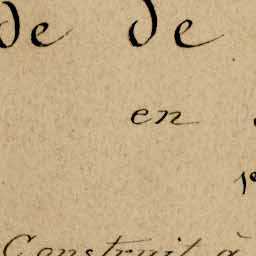 de de
en
Construit à